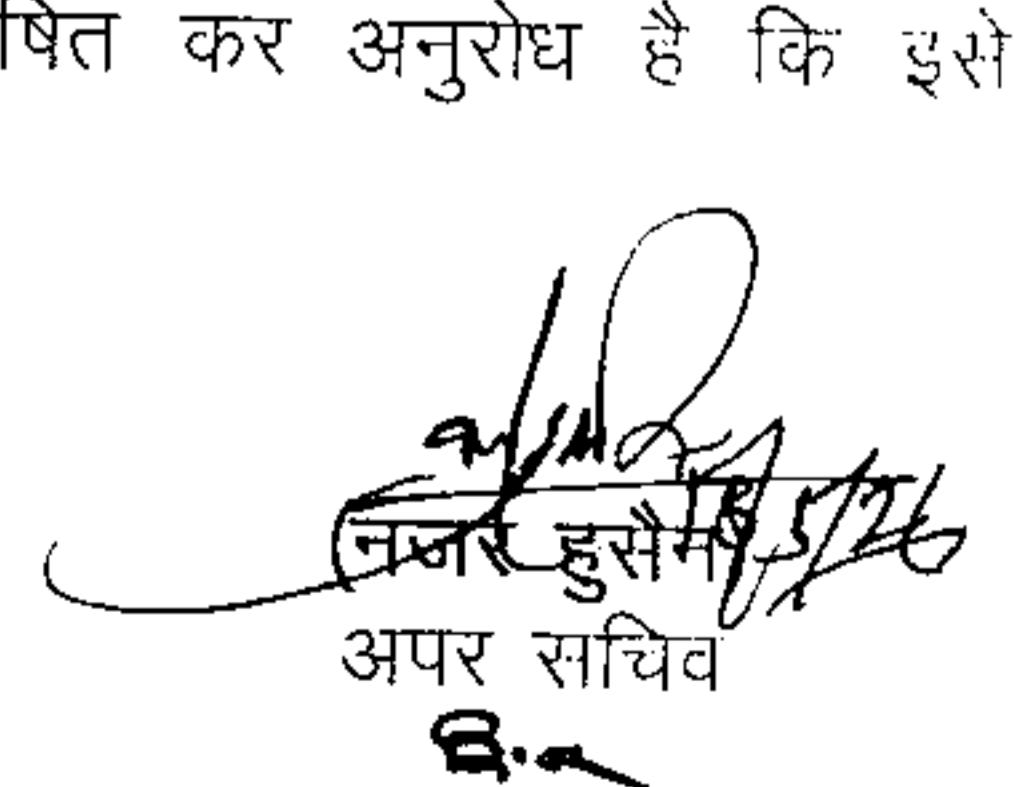 षित कर अनुरोध है कि इसे
18/5/26
(नजर हुसैन)
अपर सचिव